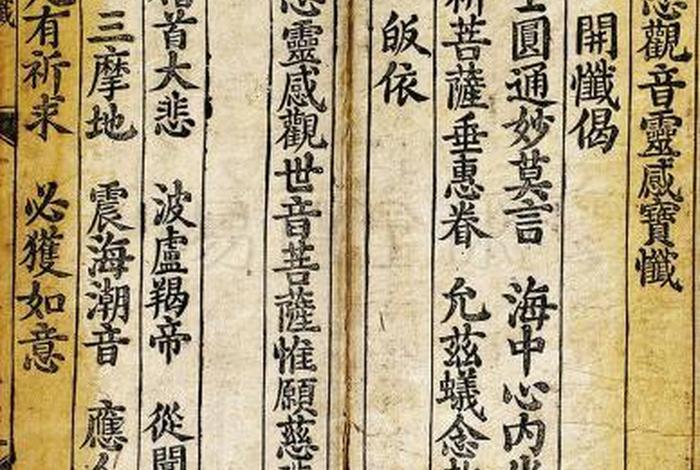 觀音靈感寶懺
開懺偈
圓通妙莫言 海中心内
菩薩垂惠眷 允茲蟻念
皈依
靈感觀世音菩薩惟願慈
首大悲 波盧羯帝 從聞
三摩地 震海潮音 應
有祈求 必獲如意